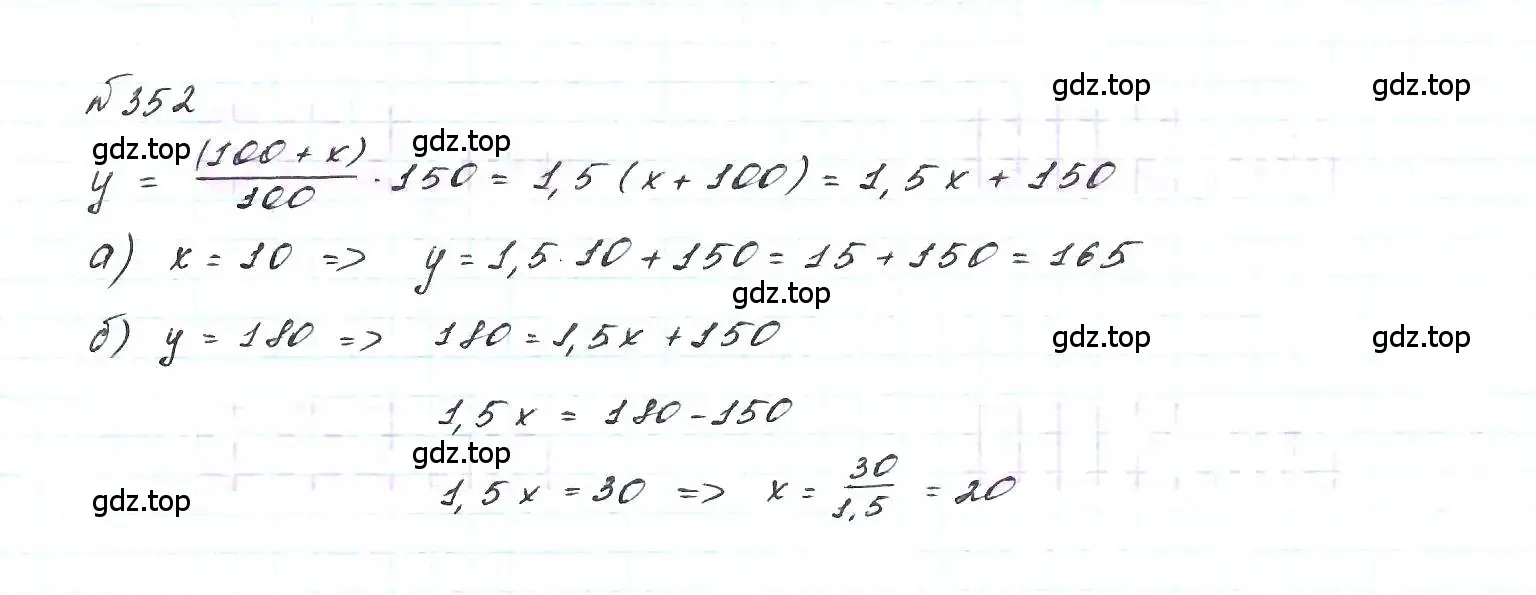 №352
gdz.top gdz.top
gdz.top gdz.top
y = (100 + x)/100 · 150 = 1,5 (x + 100) = 1,5x + 150
а) x = 10 => y = 1,5 · 10 + 150 = 15 + 150 = 165
gdz.top
б) y = 180 => 180 = 1,5x + 150
gdz.top gdz.top
1,5x = 180 - 150
gdz.top
1,5x = 30 => x = 30/1,5 = 20
gdz.top